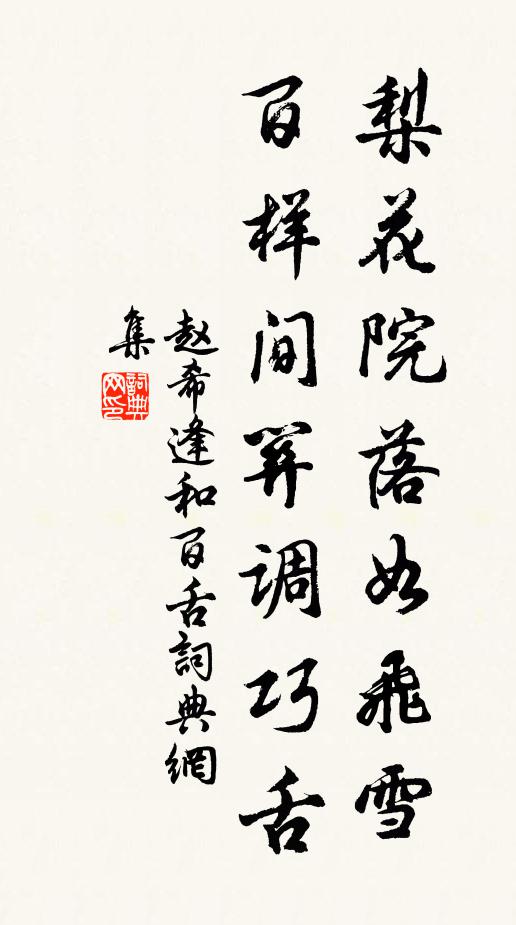 梨花院落如飛雪
百样间关調巧舌
赵希逢和百舌詞典網
集
詞典
网印